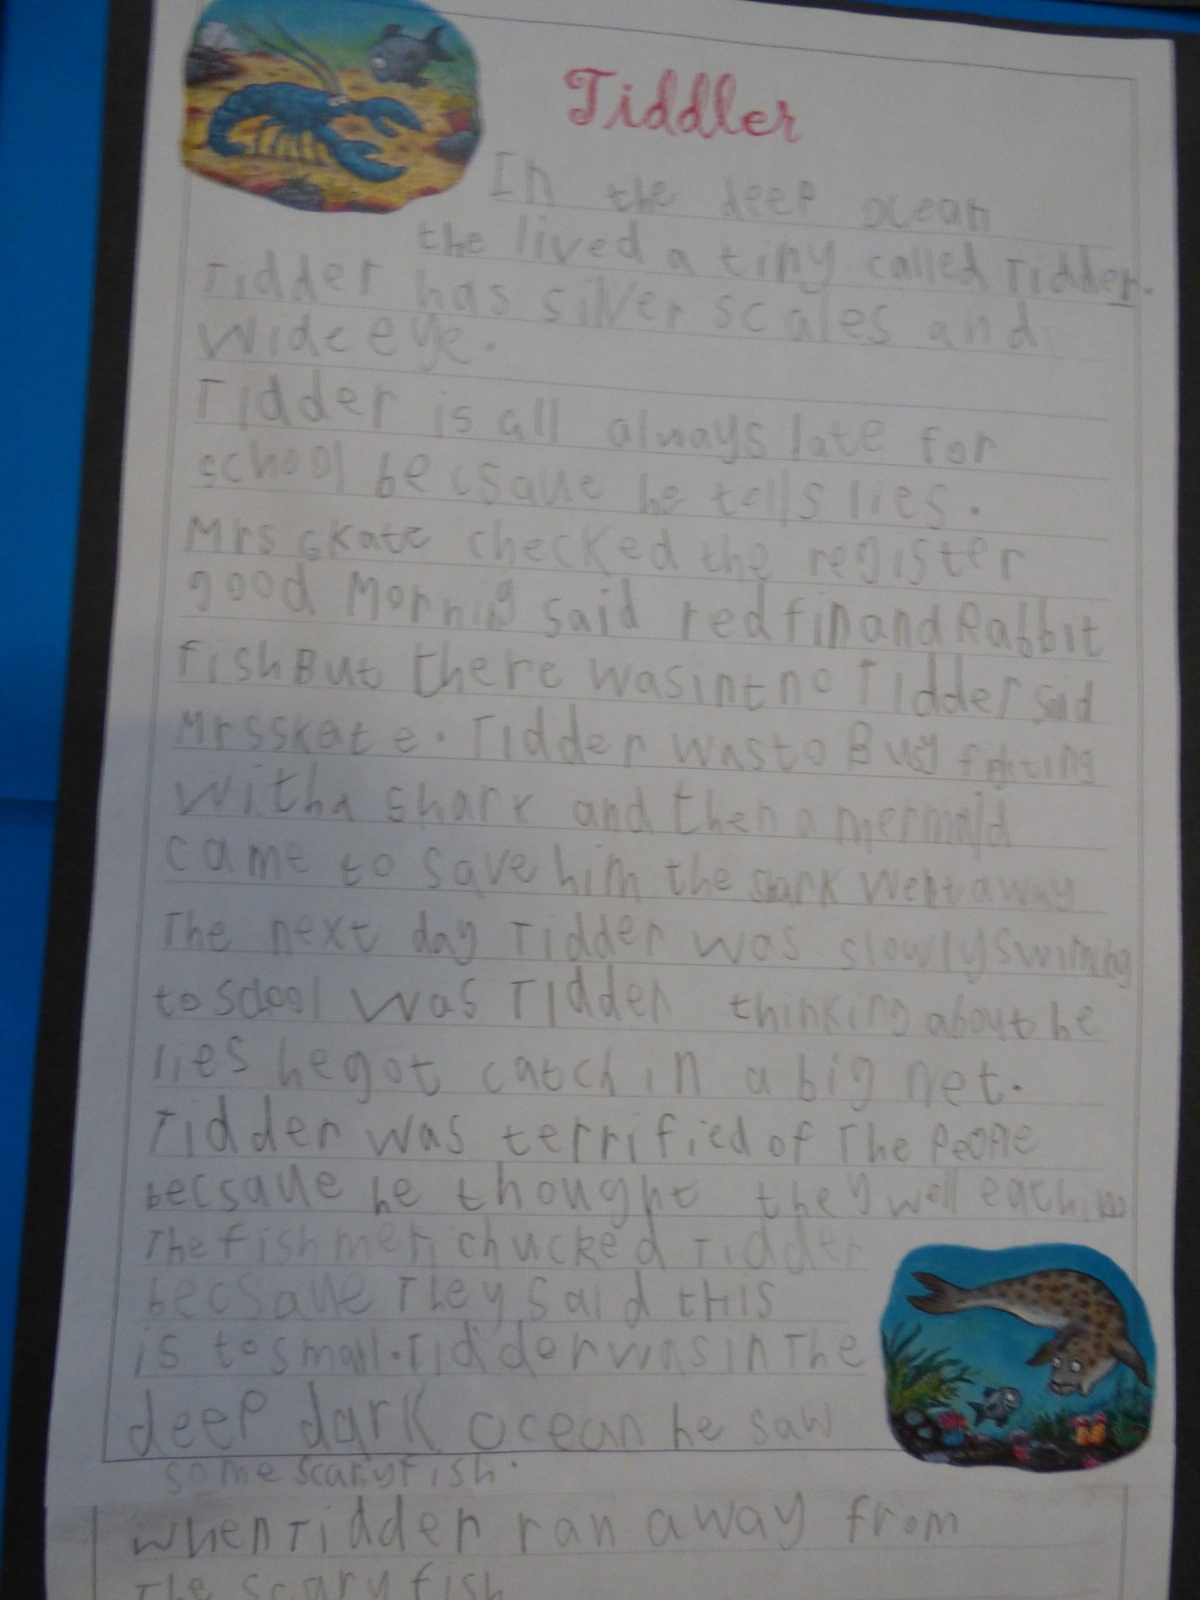 Tiddler
In the deep ocean
the lived a tiny called Tidder.
Tidder has silver scales and
wide eye.
Tidder is all always late for
school becsaue he tells lies.
Mrs skate checked the register
good Mornnig said redfinandRabbit
fishBut there wasintno Tidder sad
Mrsskate. Tidder wasto Busy fighting
witha shark and then a mermaid
came to save him the sark wentaway
The next day Tidder was slowlyswiming
to sdool was Tidder thinking about he
lies hegot catch in a big net.
Tidder was terrified of The PeoPle
becsaue he thought they well eachim
The fishmen chucked Tidder
becsaue They said tHis
is tosmall. Tidder was in The
deep dark ocean he saw
some scaryfish.
when Tidder ran away from
The scary fish